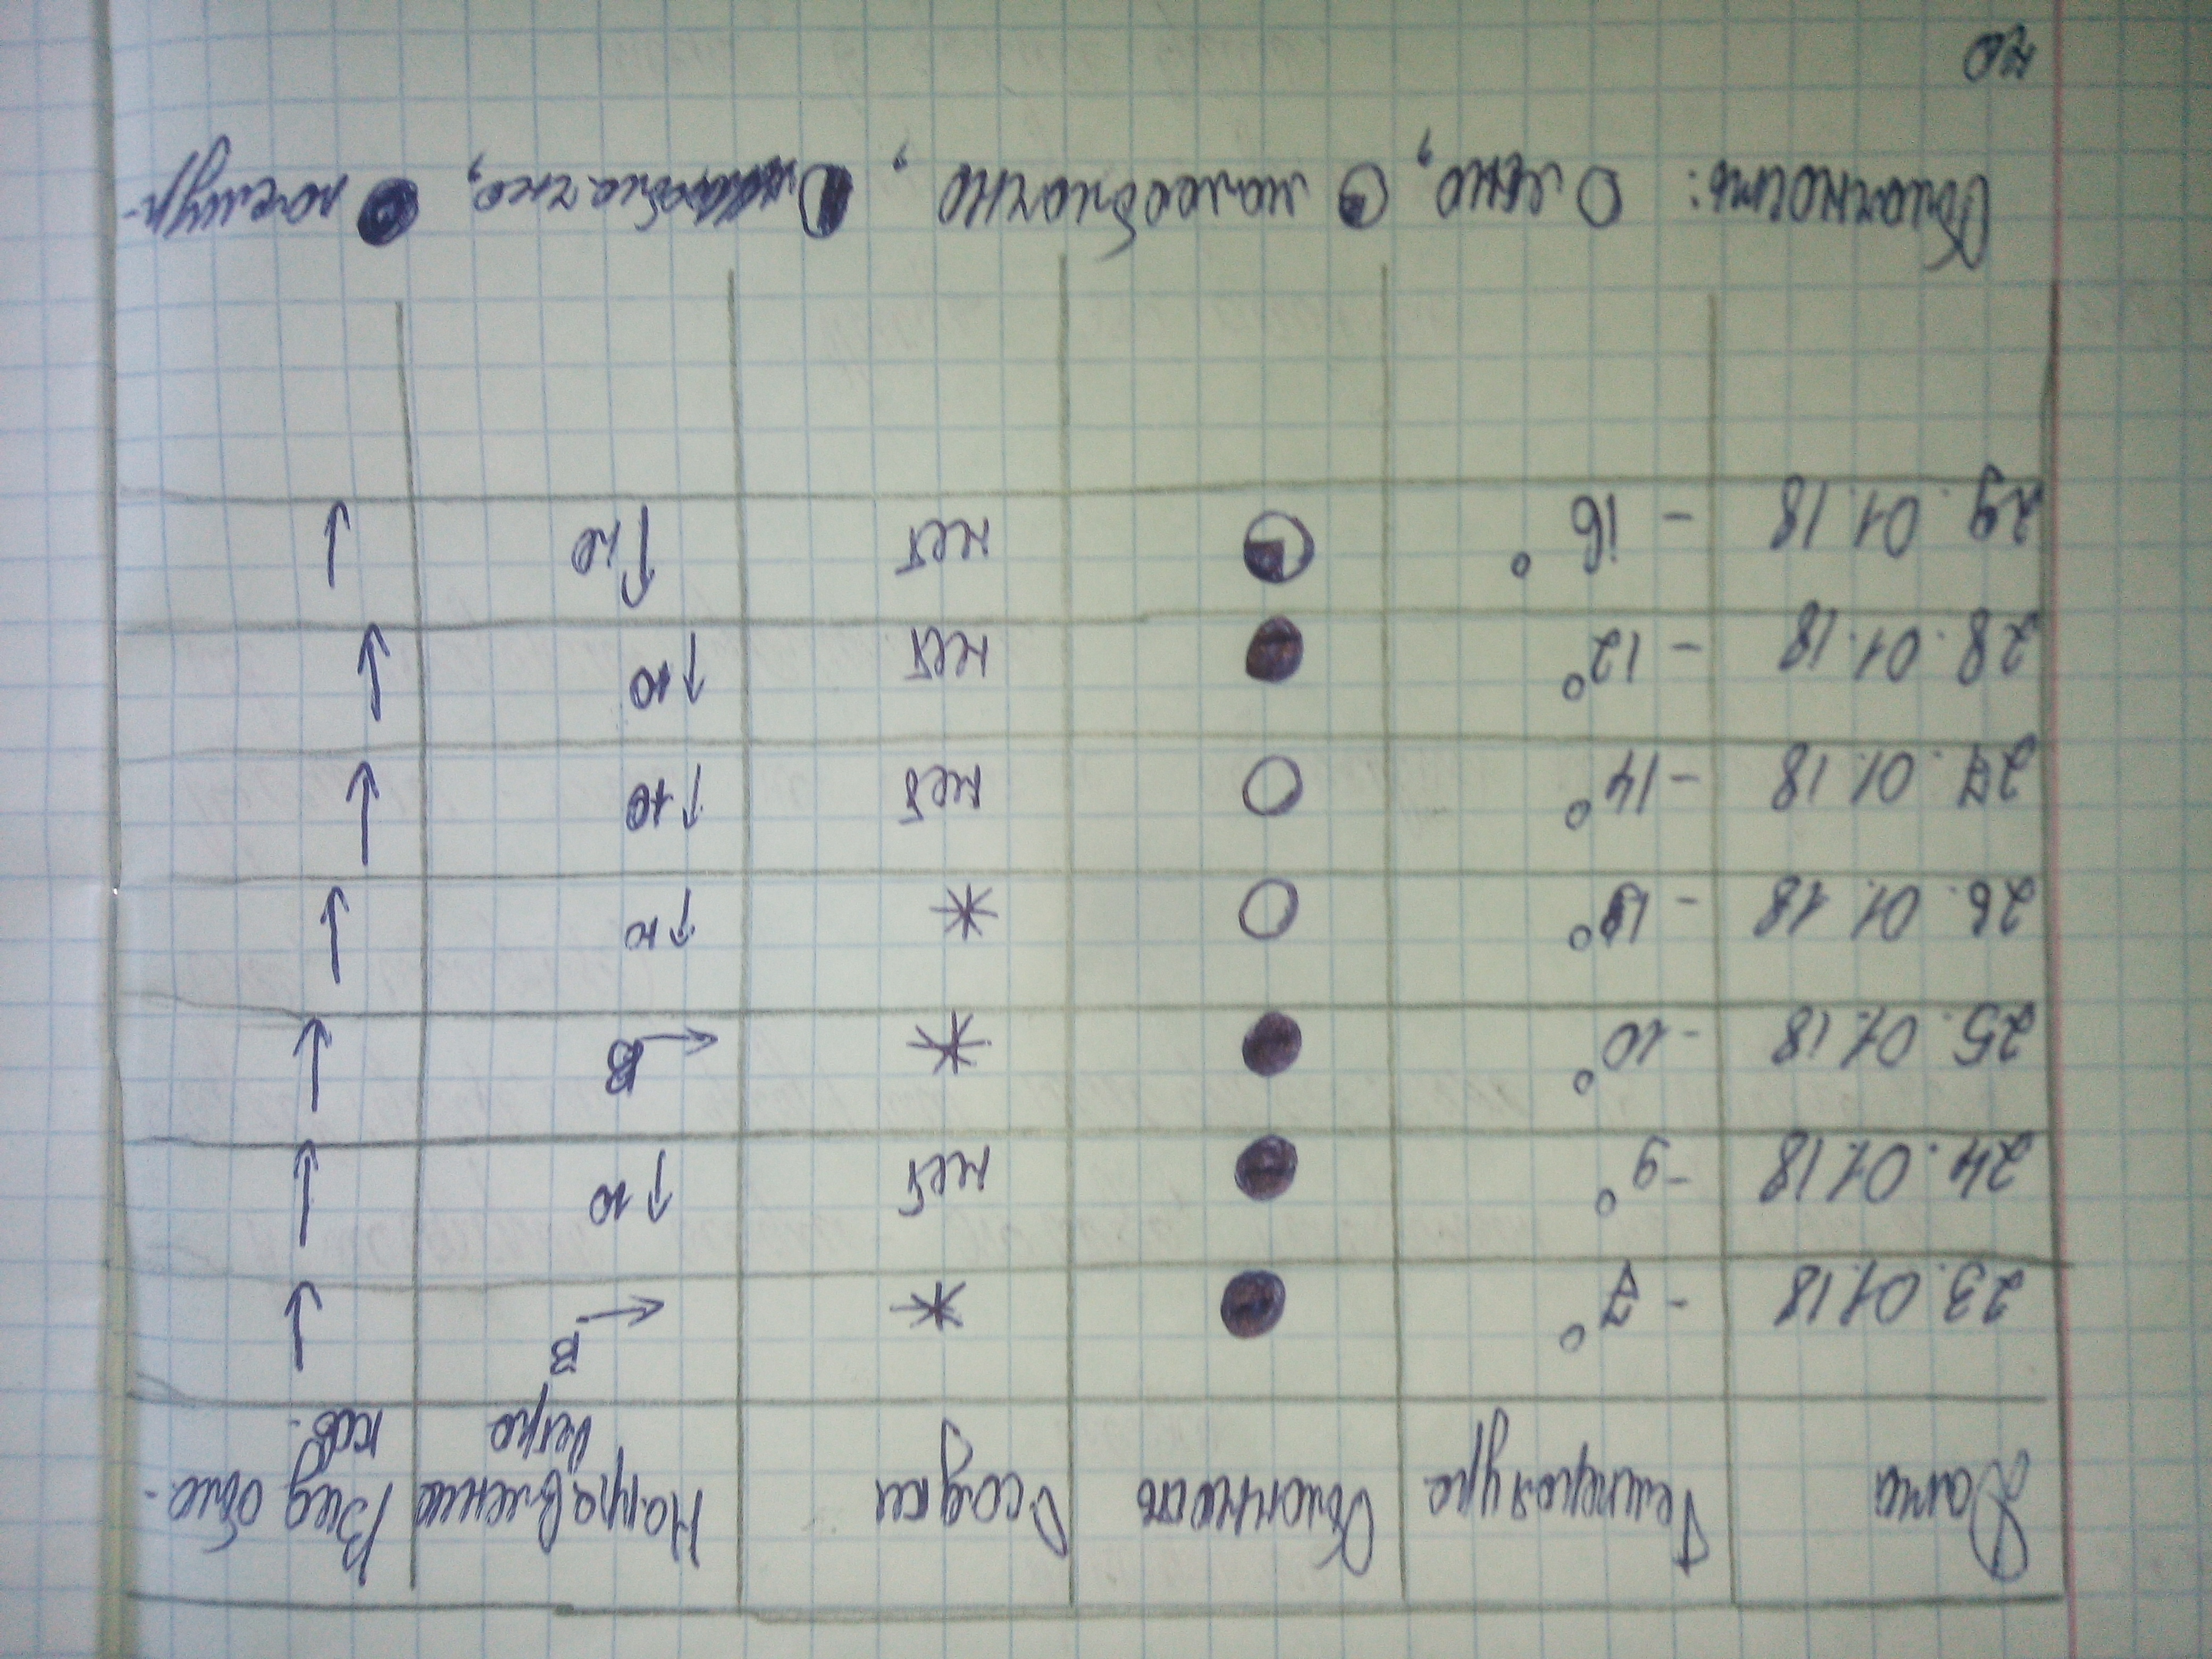 Дата Температура Облачность Осадки Направление ветра Вид обла-
ков.
23.01.18 -7° * В →
24.01.18 -9° нет ↑ Ю
25.01.18 -10° * В →
26.01.18 * ↑ Ю
27.01.18 -14° нет ↑ Ю
28.01.18 -12° нет ↑ Ю
29.01.18 -16° нет
Облачность: ясно, малооблачно, пасмур-
но